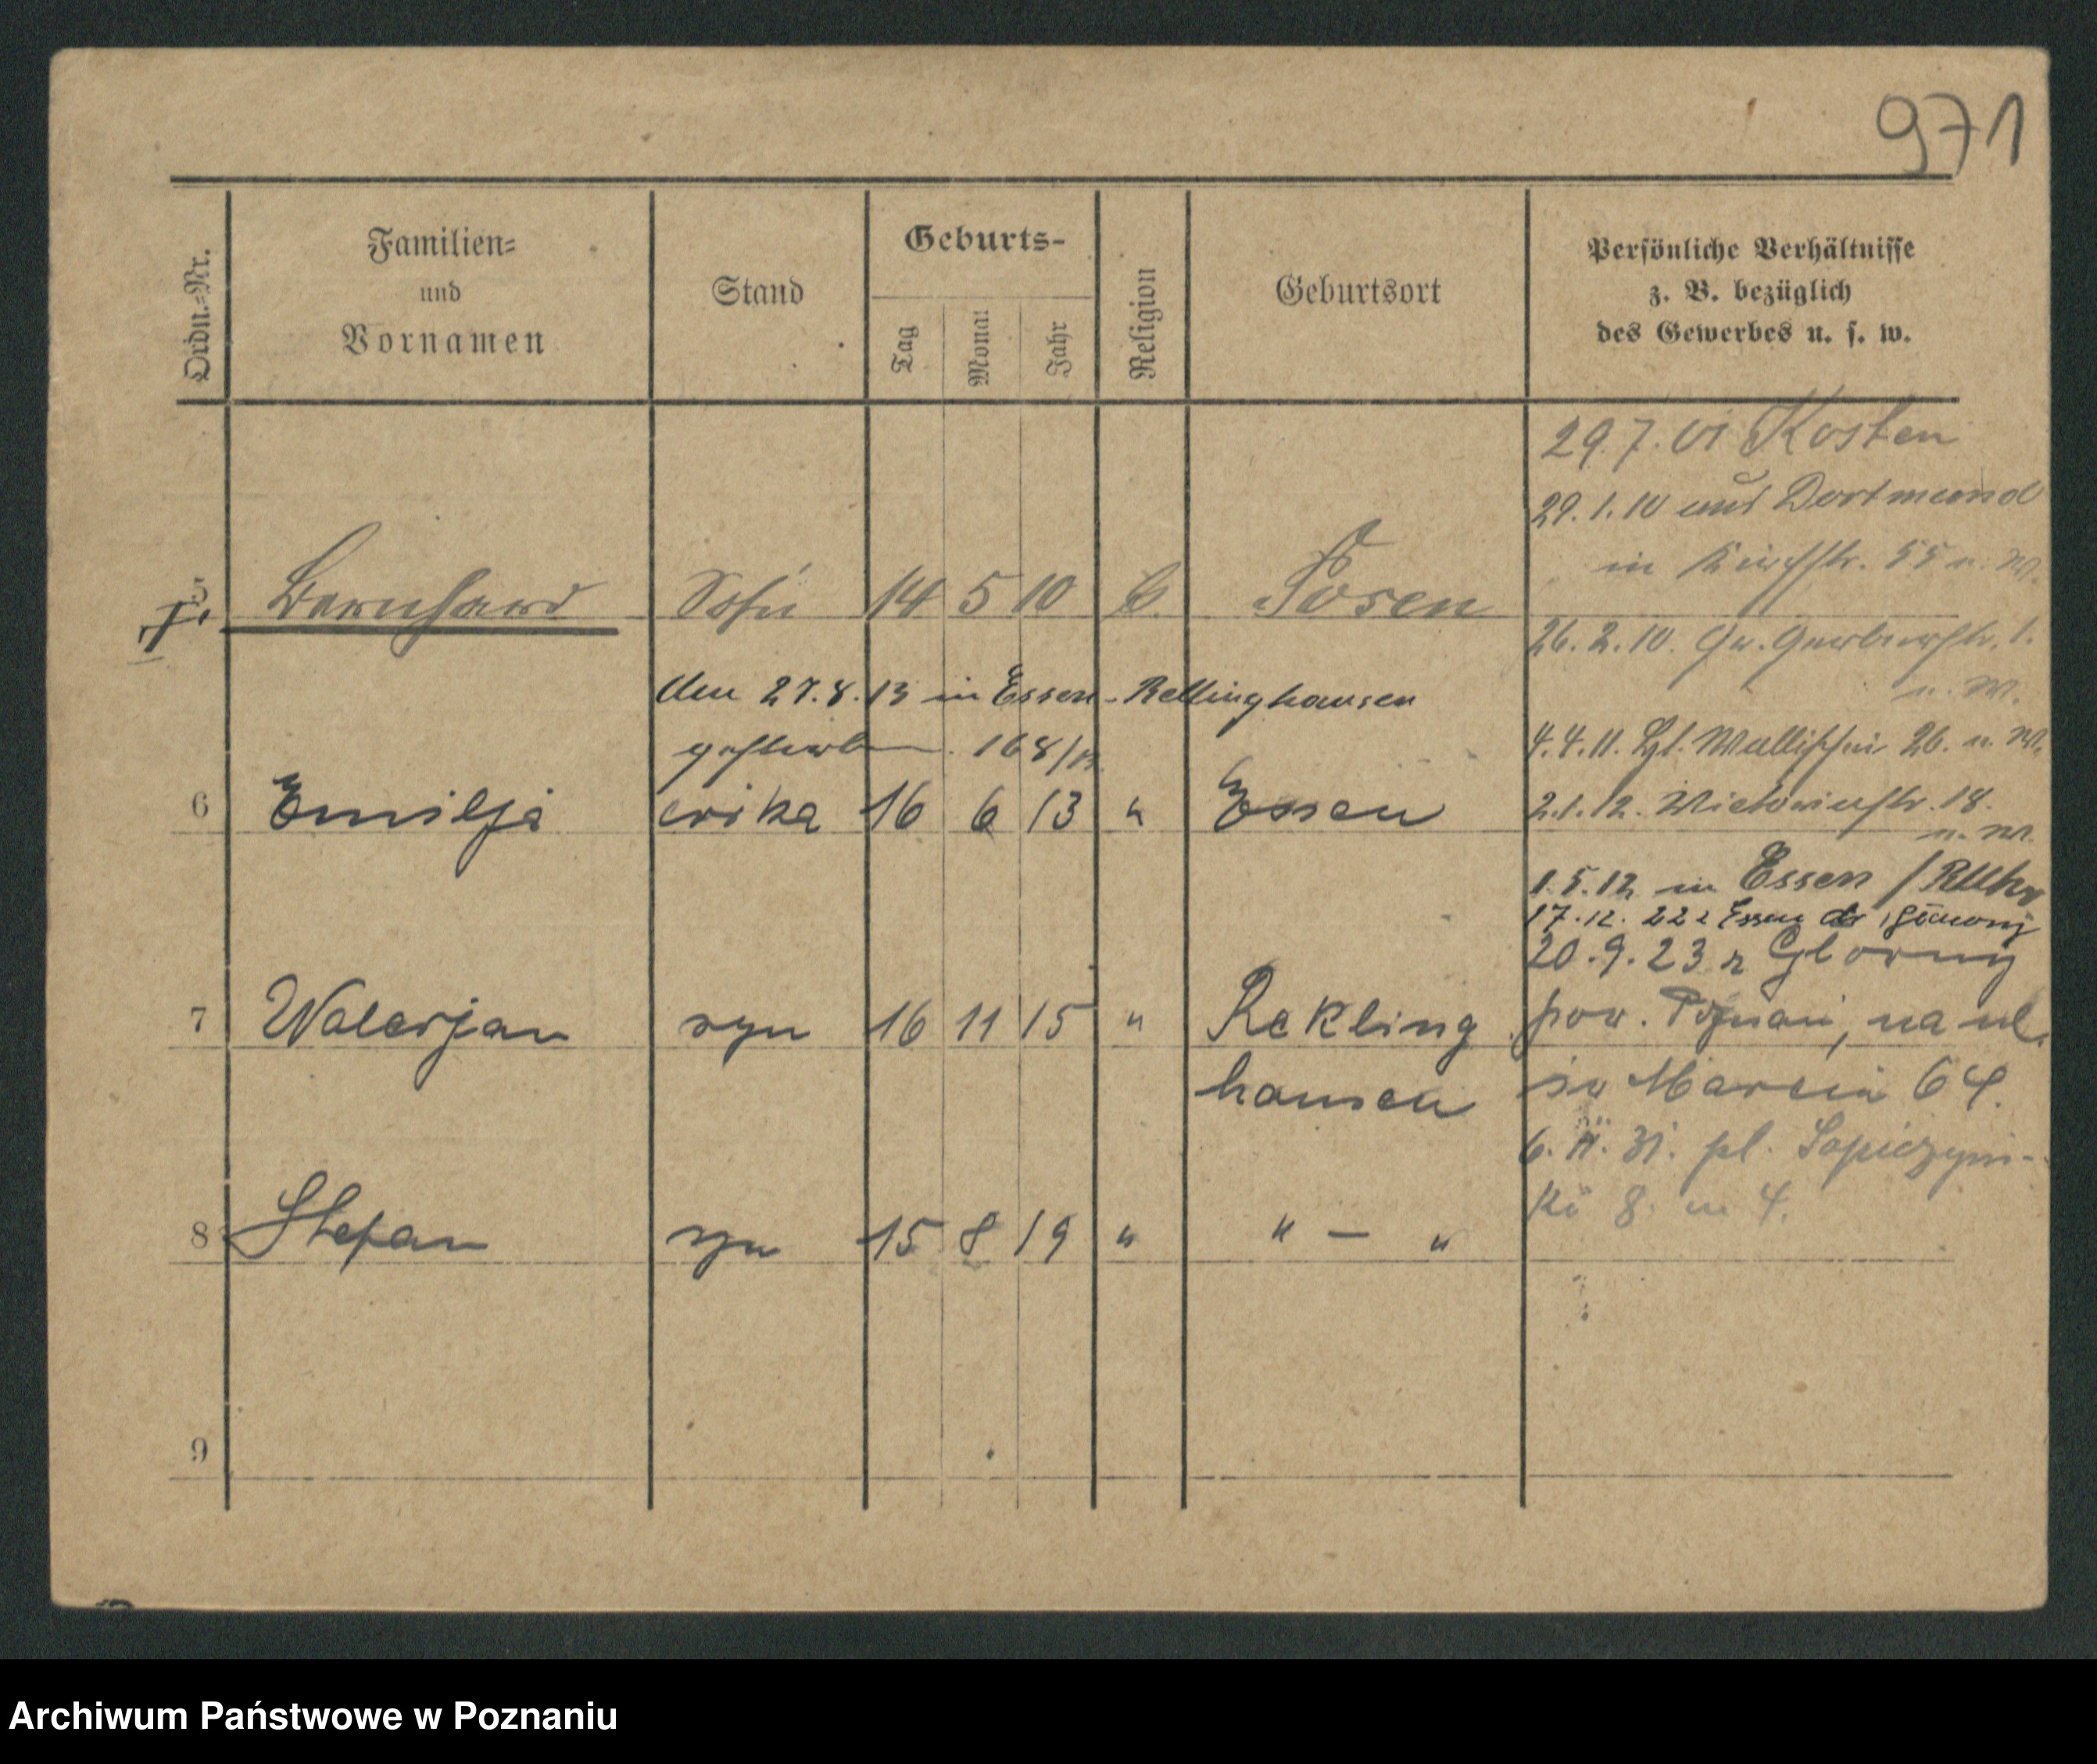 971
Ordn.-Nr.
Familien-
und
Vornamen
Stand
Geburts-
Tag
Monat
Jahr
Religion
Geburtsort
Persönliche Verhältnisse
z. B. bezüglich
des Gewerbes u. s. w.
29.7.01 Kosten
29.1.10 aus Dortmund
in 55 u. W.
5 Bernhard Sohn 14 5 10 k. Posen
26.2.10. Gr. Gerberstr. 1.
u. W.
den 27.8.13 in Essen-Rellinghausen
gestorben. 168/13
4.4.11. Wallischei 26. u. W.
6 Emilja córka 16 6 13 " Essen
2.1.12. Victoriastr. 18.
u. W.
1.5.12 in Essen / Ruhr
17.12. 22 z Essen do
20.9.23 z
7 Walerjan syn 16 11 15 " Rekling
hausen
pow. Poznań, na ul.
św Marcin 64.
6. II. 31. pl. Sapieżyń-
ki 8. m 4.
8 Stefan syn 15 8 19 " " — "
9
Archiwum Państwowe w Poznaniu